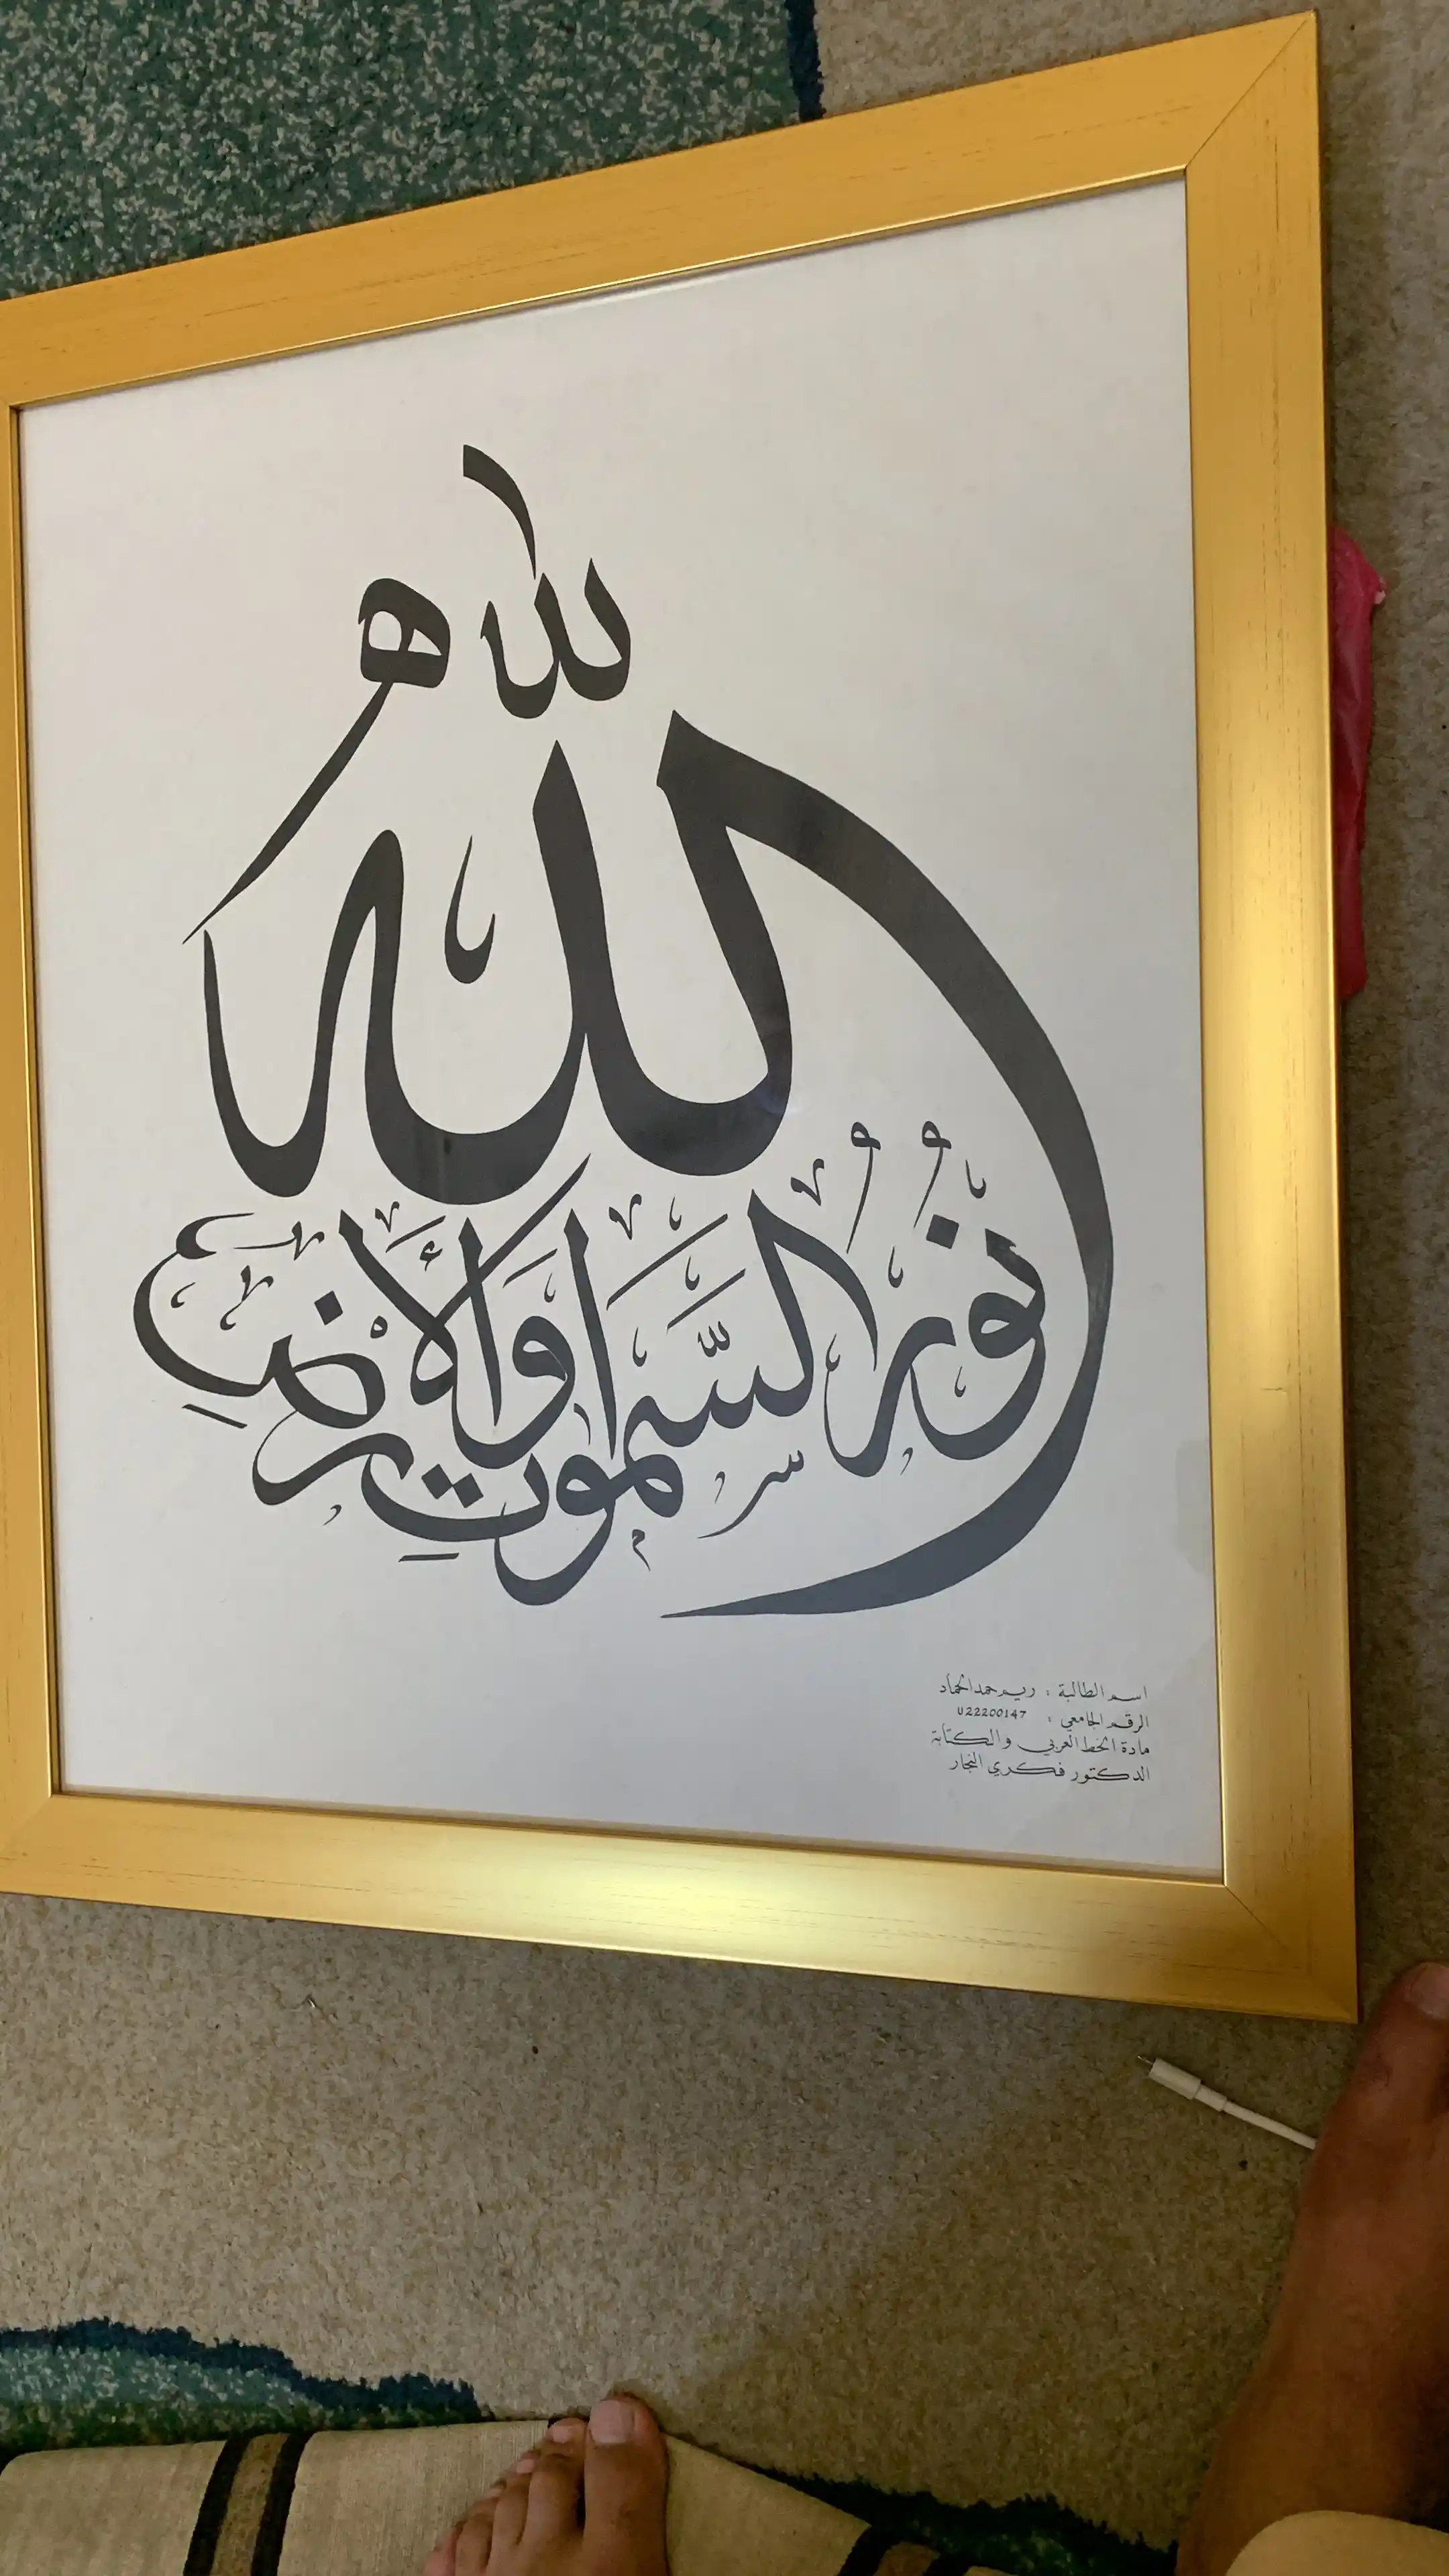 الله
نُورُ السَّمٰوَاتِ وَالْأَرْضِ
اسم الطالبة : ريم حمد الحماد
الرقم الجامعي : U22200147
مادة الخط العربي والكتابة
الدكتور فكري النجار